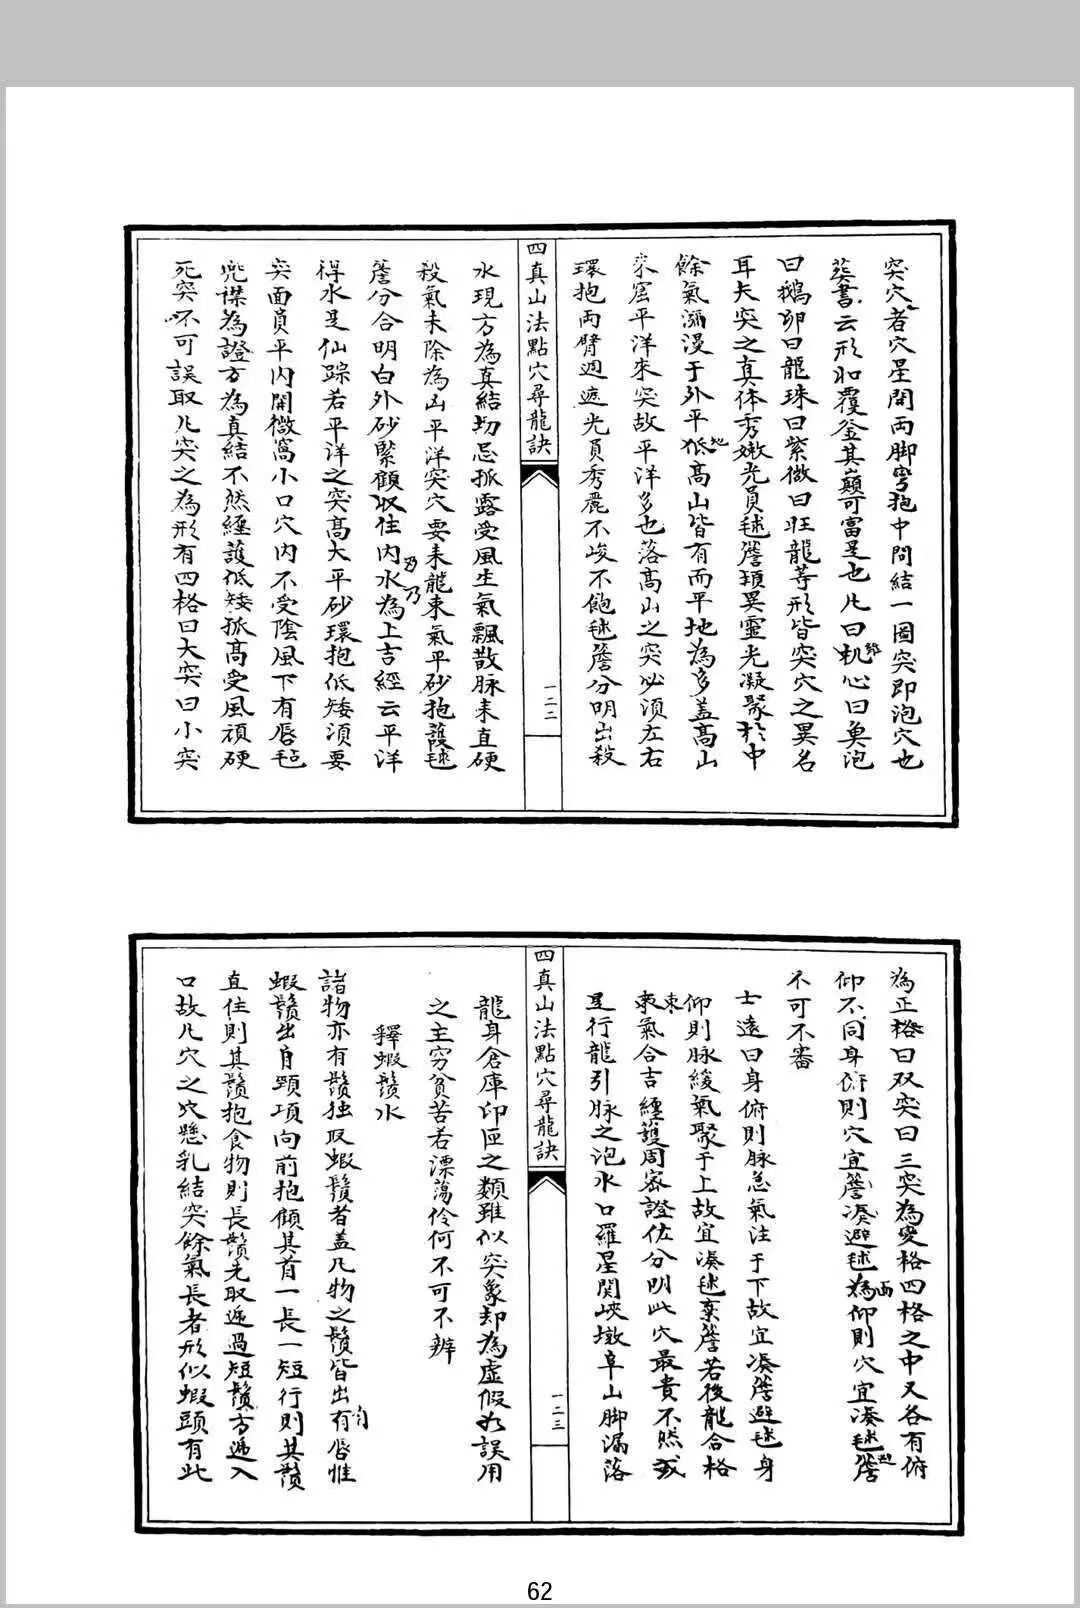 突穴者穴星開両脚弯抱中間結一圓突即泡穴也
葬書云形如覆釜其巔可富是也凡曰机心曰魚泡
曰鵝卵曰龍珠曰紫微曰旺龍等形皆突穴之異名
耳夫突之真体秀嫩光員毬簷頴異靈光凝聚於中
餘氣瀰漫于外平低高山皆有而平地為多盖高山
來窟平洋來突故平洋多也落高山之突必須左右
環抱両臂週遮光員秀麗不峻不飽毬簷分明出殺
四真山法點穴尋龍訣
一二二
水現方為真結切忌孤露受風生氣飄散脉来直硬
殺氣未除為凶平洋突穴要来龍束氣平砂抱護毬
簷分合明白外砂緊顧収住内水為上吉經云平洋
得水是仙踪若平洋之突高大平砂環抱低矮須要
突面員平内開微窩小口穴内不受陰風下有唇毡
兜襟為證方為真結不然纏護低矮孤高受風頑硬
死突不可誤取凡突之為形有四格曰大突曰小突
為正格曰双突曰三突為变格四格之中又各有俯
仰不同身俯則穴宜簷凑避毬為仰則穴宜凑毬簷
不可不審
士遠曰身俯則脉急氣注于下故宜凑簷避毬身
仰則脉緩氣聚于上故宜凑毬棄簷若後龍合格
束氣合吉纏護周密證佐分明此穴最貴不然或
是行龍引脉之泡水口羅星関峽墩阜山脚漏落
四真山法點穴尋龍訣
一二三
龍身倉庫印匣之類雖似突象却為虛假如誤用
之主穷貧苦若漂蕩伶何不可不辨
釋蝦鬚水
諸物亦有鬚独取蝦鬚者盖凡物之鬚皆出有唇惟
蝦鬚出自頸項向前抱顧其首一長一短行則其鬚
直住則其鬚抱食物則長鬚先取逓過短鬚方逓入
口故凡穴之穴懸乳結突餘氣長者形似蝦頭有此
62